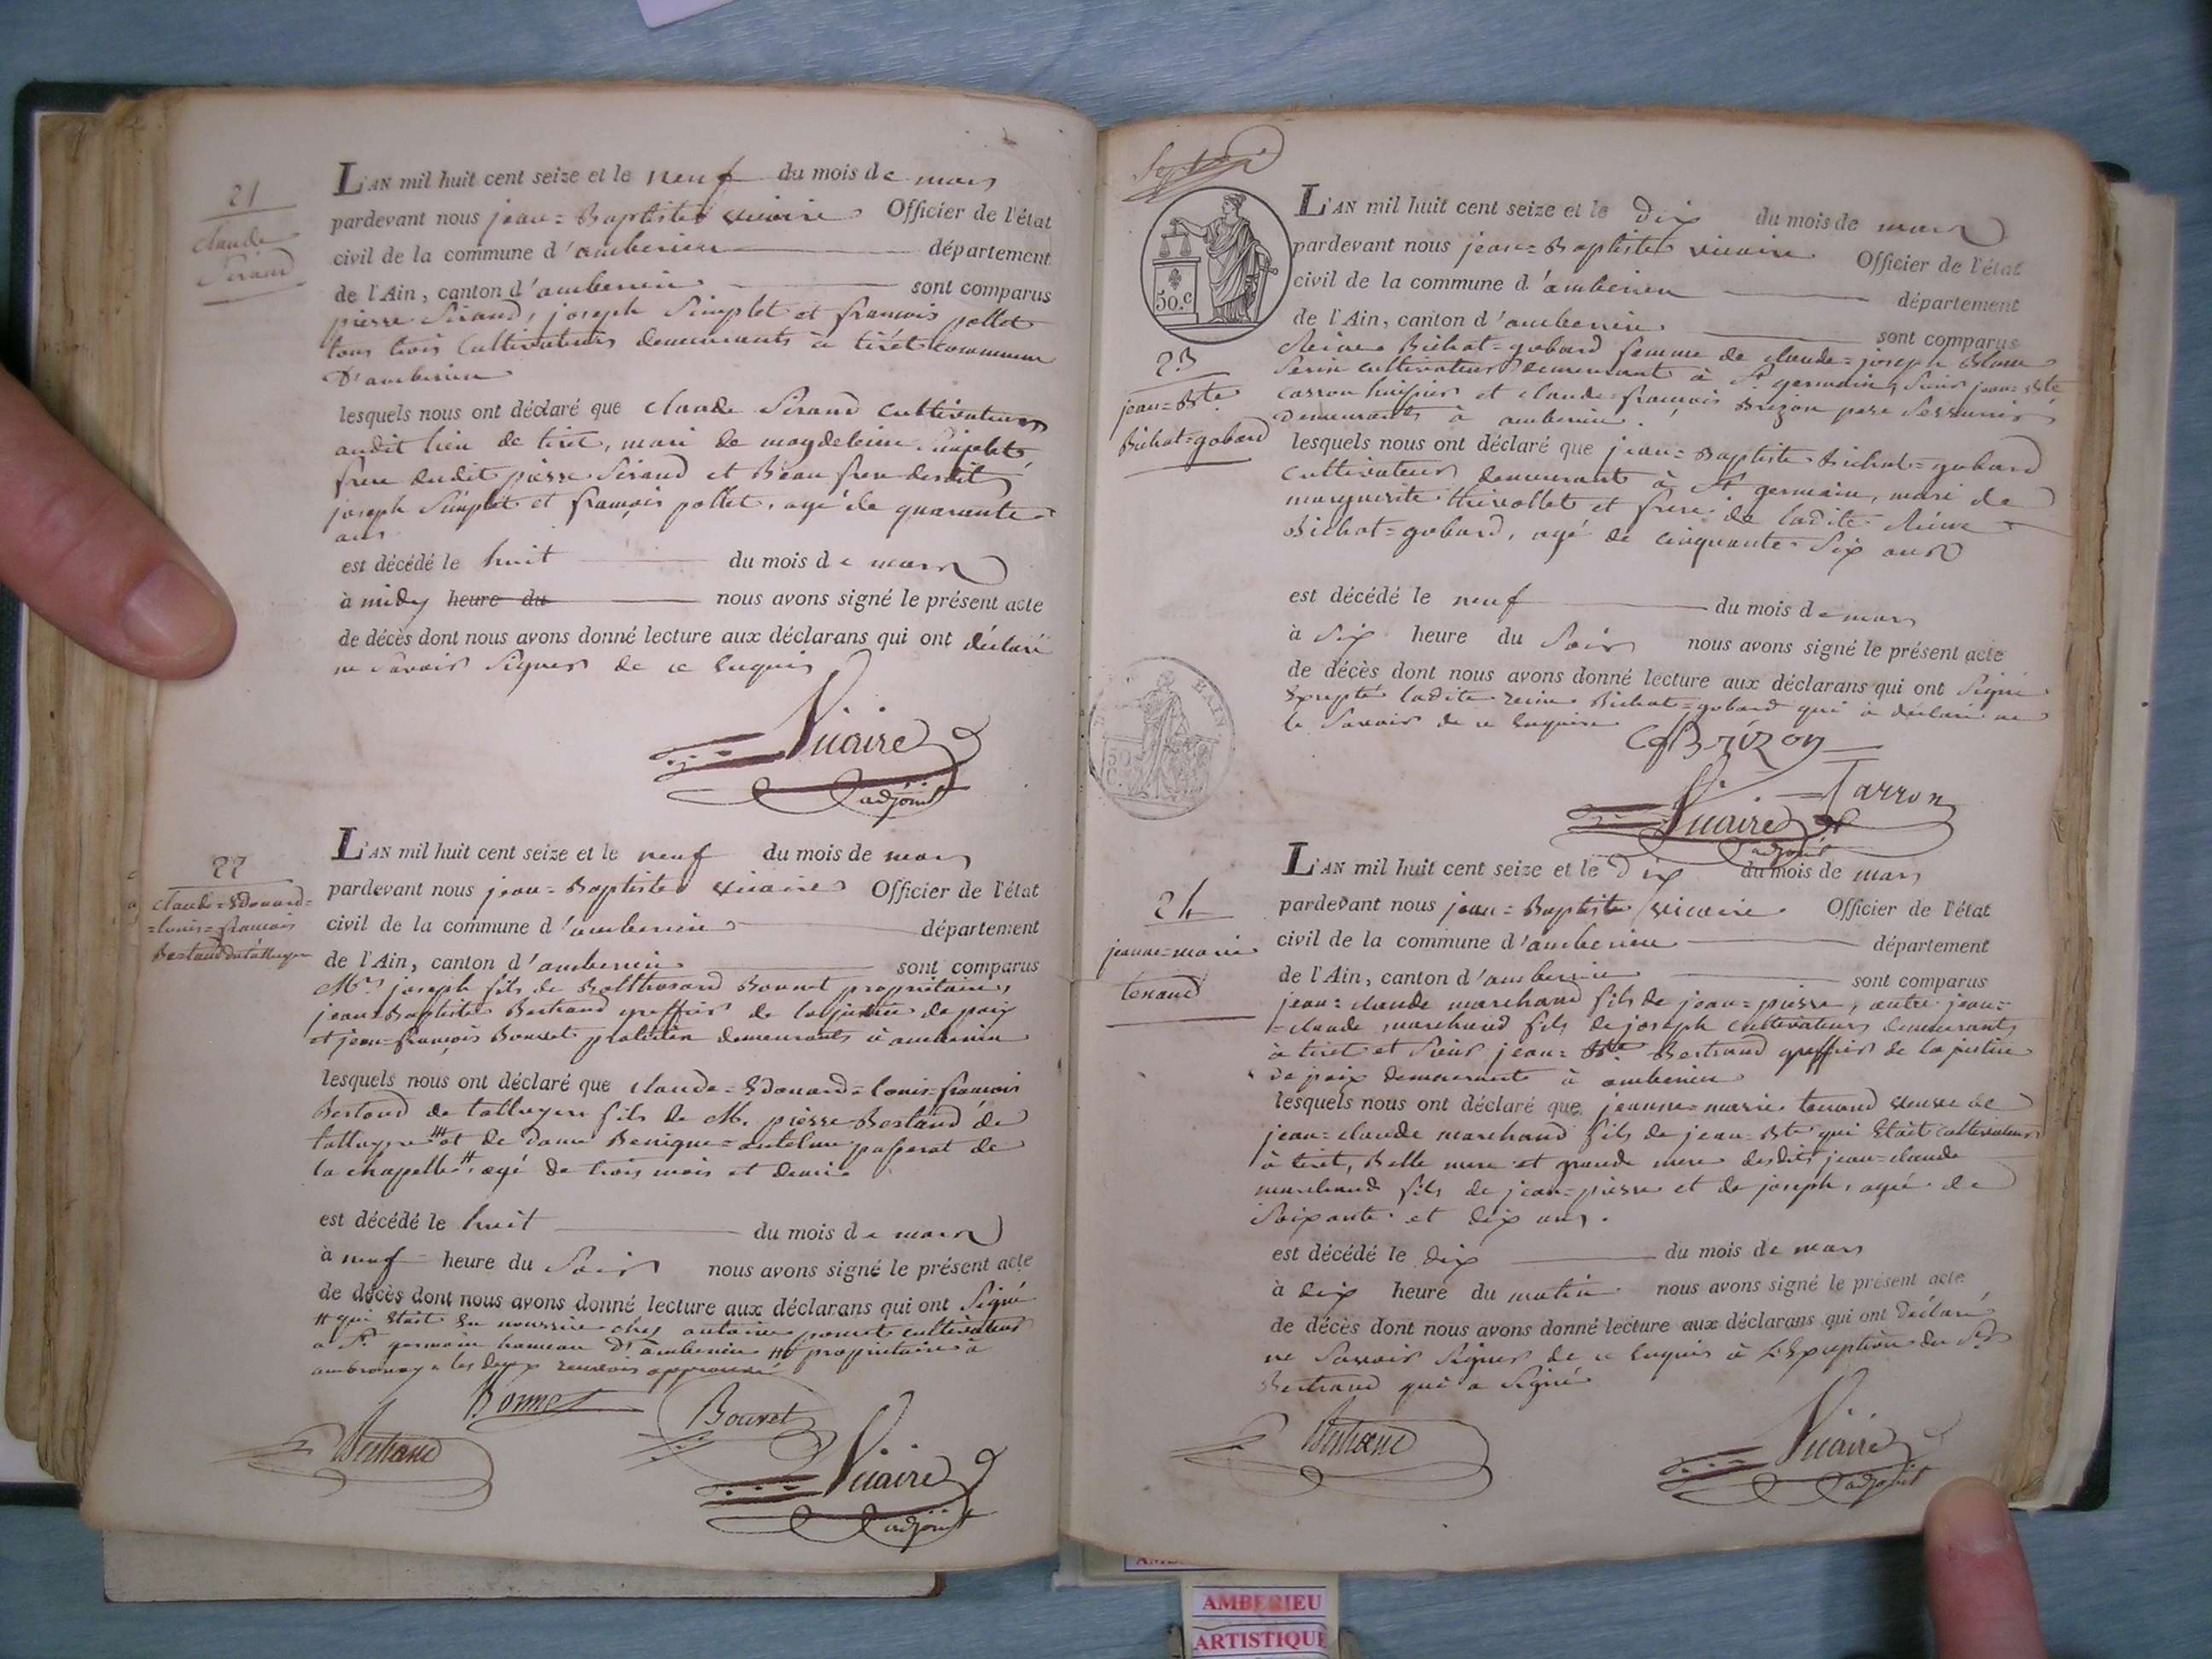 21
claude
Sirand
L'AN mil huit cent seize et le neuf du mois de mars
pardevant nous jean=Baptiste vicaire Officier de l'état
civil de la commune d'amberieu département
de l'Ain, canton d'amberieu sont comparus
pierre Sirand, joseph Simplet et francois pollet
tous trois Cultivateurs demeurants à tirét commune
D'amberieu
lesquels nous ont déclaré que claude Sirand Cultivateur
audit lieu de tiret, mari de magdeleine Simplet
frere dudit pierre Sirand et Beau frere desdits
joseph Simplet et françois pollet, agé de quarante
ans
est décédé le huit du mois de mars
à midy heure du nous avons signé le présent acte
de décès dont nous avons donné lecture aux déclarans qui ont déclaré
ne Savoir Signer de ce Enquis
Vicaire
adjoint
22
claude=Edouard=
=louis=francois
Bertrand de talluyere
L'AN mil huit cent seize et le neuf du mois de mars
pardevant nous jean=Baptiste vicaire Officier de l'état
civil de la commune d'amberieu département
de l'Ain, canton d'amberieu sont comparus
Mrs joseph fils de Balthasard Bonnet propriétaire,
jean Baptiste Bertrand greffier de la justice de paix
et jean=françois Bouvet praticien demeurants à amberieu
lesquels nous ont déclaré que claude=Edouard=louis=francois
Bertand de talluyere fils de M. pierre Bertand de
talluyere et de dame Benique=antelme passerat de
la chapelle, agé de trois mois et demi
est décédé le huit du mois de mars
à neuf heure du Soir nous avons signé le présent acte
de décès dont nous avons donné lecture aux déclarans qui ont Signé
# qui Etait En nourrice chez antoine cultivateur
a St germain hameau D'amberieu # propriétaire à
ambronay les deux renvois approuvé
Bonnet
Bouvet
Bertrand
Vicaire
adjoint
50.c
L'AN mil huit cent seize et le Dix du mois de mars
pardevant nous jean=Baptiste vicaire Officier de l'état
civil de la commune d'amberieu département
de l'Ain, canton d'amberieu sont comparus
23
jean=Bte
Bichat=gobard
Reine Bichat=gobard femme de claude=joseph Blanc
Serin cultivateur demeurant à St germain, Sieur jean=Bte
Carron huissier et claude francois Brizon pere Serrurier
demeurants à amberieu.
lesquels nous ont déclaré que jean=Baptiste Bichat=gobard
Cultivateur demeurant à St germain, mari de
marguerite thevollet et frere de ladite Reine
Bichat=gobard, agé de cinquante Six ans
est décédé le neuf du mois de mars
à Six heure du Soir nous avons signé le présent acte
de décès dont nous avons donné lecture aux déclarans qui ont Signé
Excepté ladite reine Bichat=gobard qui a déclaré ne
le Savoir de ce Enquise
CfBrizon
Carron
Vicaire
adjoint
24
jeanne=marie
tenand
L'AN mil huit cent seize et le Dix du mois de mars
pardevant nous jean=Baptiste vicaire Officier de l'état
civil de la commune d'amberieu département
de l'Ain, canton d'amberieu sont comparus
jean=claude marchand fils de jean=pierre, autre jean=
=claude marchand fils de joseph cultivateurs demeurants
à tiret et Sieur jean=Bte Bertrand greffier de la justice
de paix demeurant à amberieu
lesquels nous ont déclaré que jeanne=marie tenand veuve de
jean=claude marchand fils de jean=Bte qui Etait cultivateur
à tiret, Belle mere et grande mere desdits jean=claude
marchand fils de jean=pierre et de joseph, agée de
Soixante et dix ans.
est décédé le dix du mois de mars
à dix heure du matin nous avons signé le présent acte
de décès dont nous avons donné lecture aux déclarans qui ont Déclaré
ne Savoir Signer de ce Enquis à L'Exception du Sr
Bertrand qui a Signé
Bertrand
Vicaire
adjoint
AMBERIEU
ARTISTIQUE